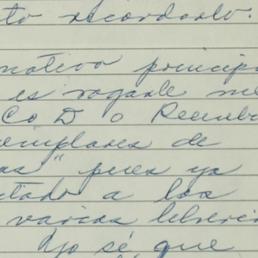 to recordarlo.
motivo princip
es rogarle me
C o D o Reembo
emplares de
as" pues ya
tado a las
varias libreri
Yo sé que